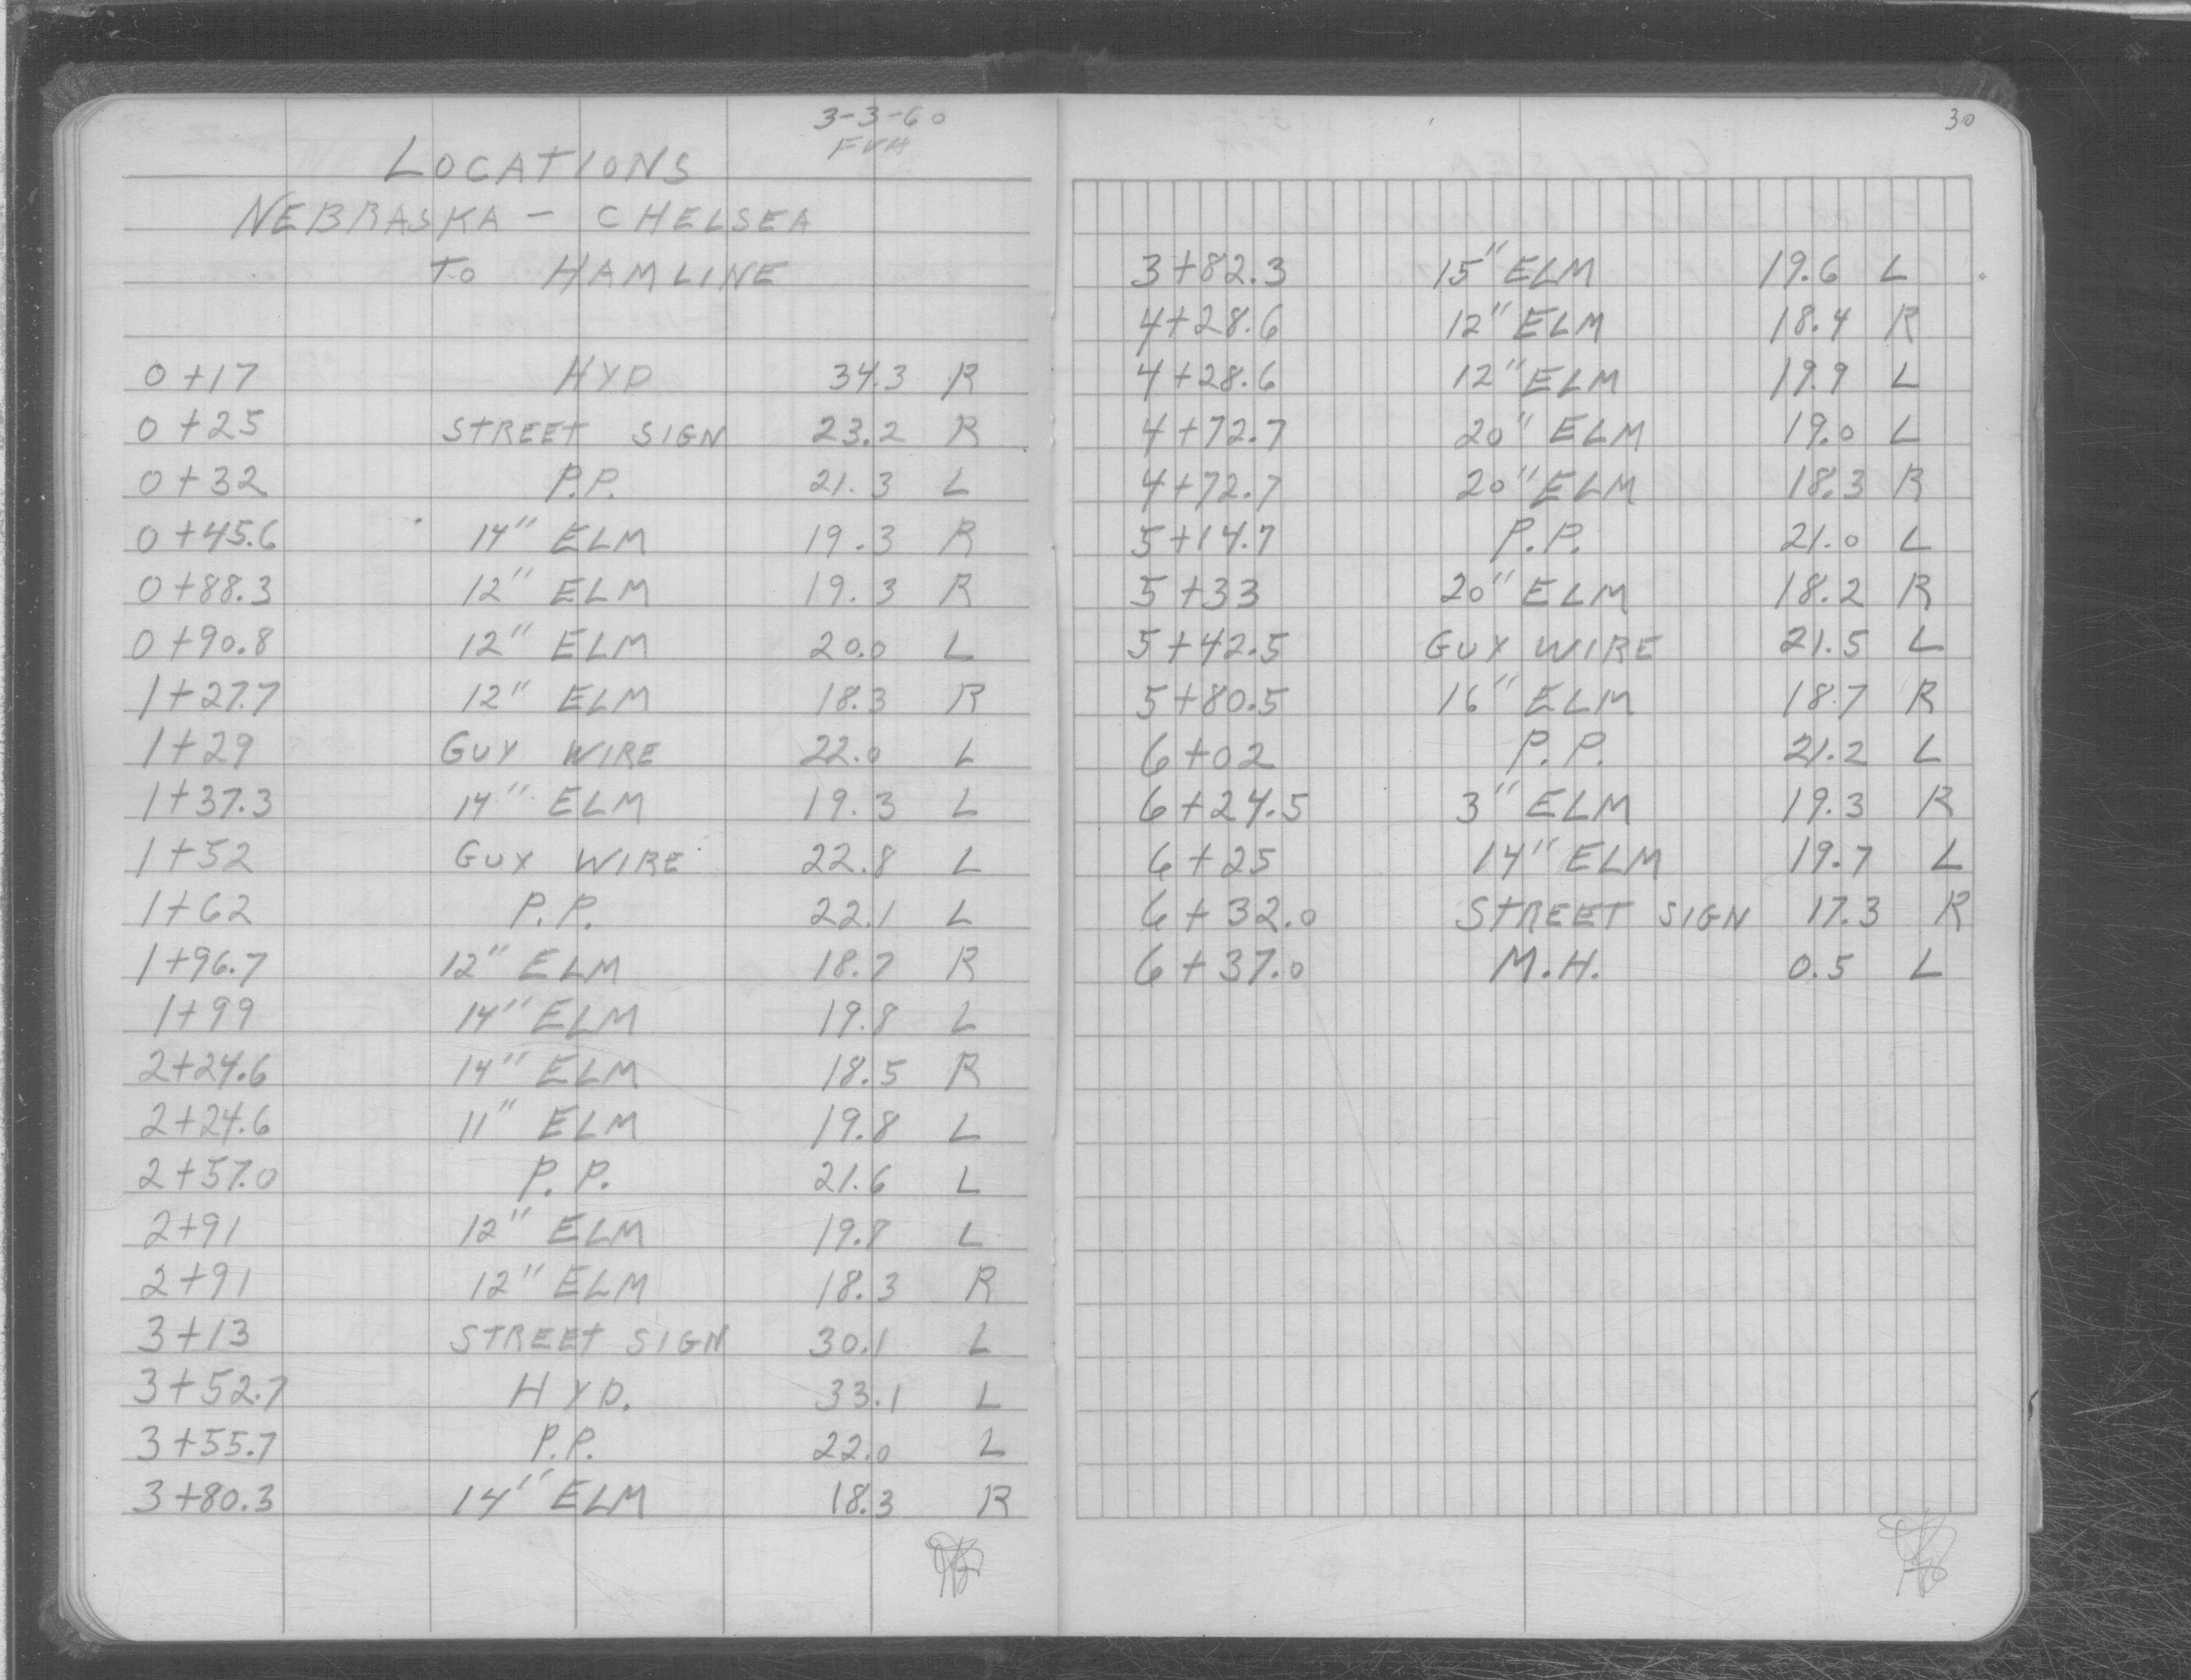 3-3-60
FVH
LOCATIONS
NEBRASKA - CHELSEA
TO HAMLINE
0+17 HYD 34.3 R
0+25 STREET SIGN 23.2 R
0+32 P.P. 21.3 L
0+45.6 14" ELM 19.3 R
0+88.3 12" ELM 19.3 R
0+90.8 12" ELM 20.0 L
1+27.7 12" ELM 18.3 R
1+29 GUY WIRE 22.0 L
1+37.3 14" ELM 19.3 L
1+52 GUY WIRE 22.8 L
1+62 P.P. 22.1 L
1+96.7 12" ELM 18.7 R
1+99 14" ELM 19.8 L
2+24.6 14" ELM 18.5 R
2+24.6 11" ELM 19.8 L
2+57.0 P.P. 21.6 L
2+91 12" ELM 19.8 L
2+91 12" ELM 18.3 R
3+13 STREET SIGN 30.1 L
3+52.7 HYD. 33.1 L
3+55.7 P.P. 22.0 L
3+80.3 14" ELM 18.3 R
30
3+82.3 15" ELM 19.6 L
4+28.6 12" ELM 18.4 R
4+28.6 12" ELM 19.9 L
4+72.7 20" ELM 19.0 L
4+72.7 20" ELM 18.3 R
5+14.7 P.P. 21.0 L
5+33 20" ELM 18.2 R
5+42.5 GUY WIRE 21.5 L
5+80.5 16" ELM 18.7 R
6+02 P.P. 21.2 L
6+24.5 3" ELM 19.3 R
6+25 14" ELM 19.7 L
6+32.0 STREET SIGN 17.3 R
6+37.0 M.H. 0.5 L